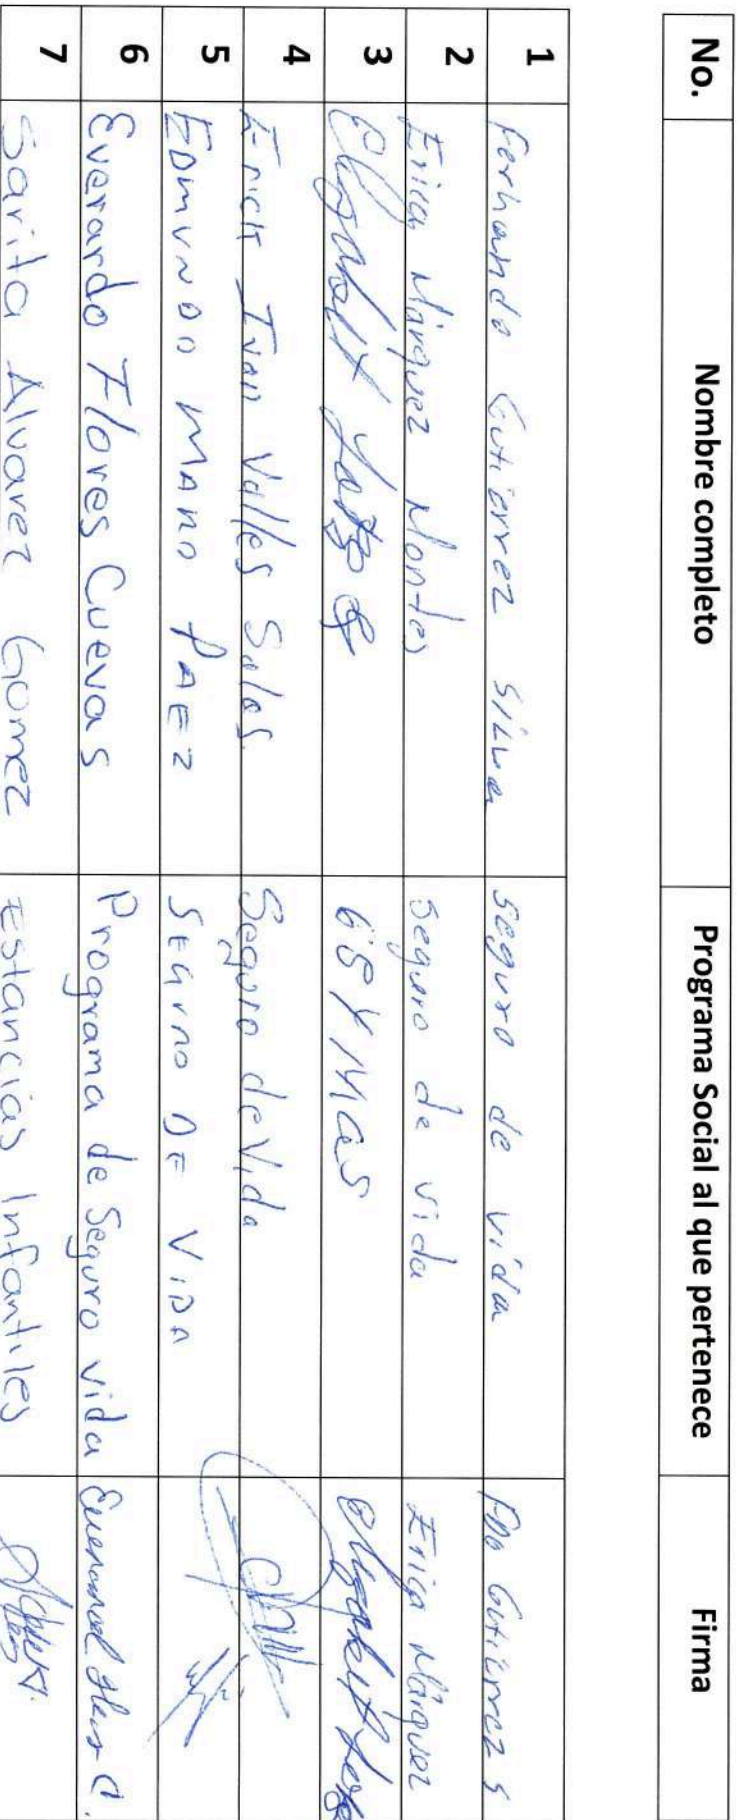 No. Nombre completo Programa Social al que pertenece Firma
1 Fernando Gutierrez Silva Seguro de vida Fdo Gutierrez S
2 Erica Márquez Montes Seguro de vida Erica Márquez
3 65 Y Mas
4 Erick Ivan Valles Salas Seguro de Vida
5 EDMUNDO MARO PAEZ SEGURO DE VIDA
6 Everardo Flores Cuevas Programa de Seguro vida
7 Sarita Alvarez Gomez Estancias Infantiles